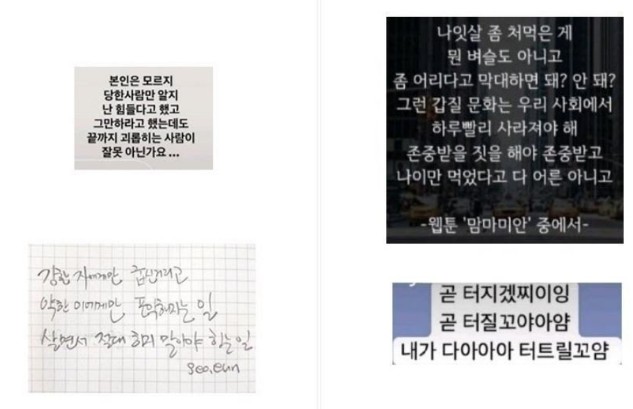 본인은 모르지
당한사람만 알지
난 힘들다고 했고
그만하라고 했는데도
끝까지 괴롭히는 사람이
잘못 아닌가요 ...
강한 자에게만 굽신거리고
약한 이에게만 포악해지는 일
살면서 절대 하지 말아야 하는 일
seo.eun
나잇살 좀 처먹은 게
뭔 벼슬도 아니고
좀 어리다고 막대하면 돼? 안 돼?
그런 갑질 문화는 우리 사회에서
하루빨리 사라져야 해
존중받을 짓을 해야 존중받고
나이만 먹었다고 다 어른 아니고
-웹툰 '맘마미안' 중에서-
곧 터지겠찌이잉
곧 터질꼬야아얌
내가 다아아아 터트릴꼬얌